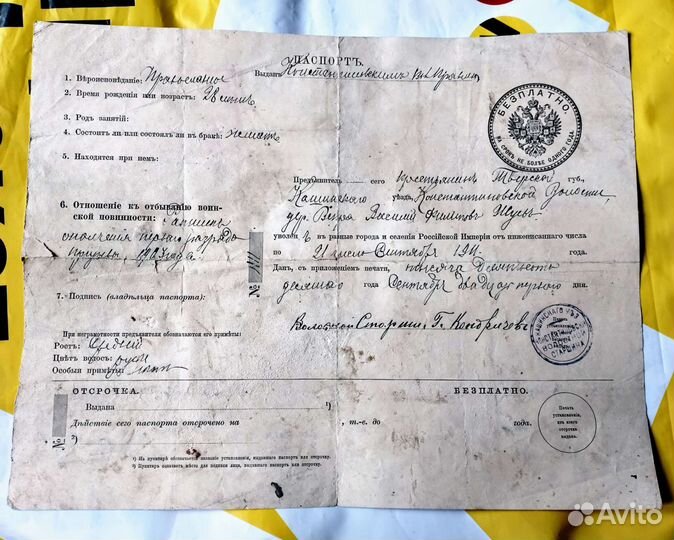 ПАСПОРТЪ.
1. Вѣроисповѣданіе: Православное Выданъ Константиновскимъ Вол. Правл.
2. Время рожденія или возрастъ: 28 лѣтъ
3. Родъ занятій:
4. Состоитъ ли или состоялъ ли въ бракѣ: женатъ
5. Находятся при немъ:
БЕЗПЛАТНО.
НА СРОКЪ НЕ БОЛѢЕ ОДНОГО ГОДА.
Предъявитель сего крестьянинъ Тверской губ.
Кашинскаго уѣзда, Константиновской Волости,
6. Отношеніе къ отбыванію воин-
ской повинности:
дер. Василий Филиповъ
ополченія разряда
уволенъ въ разные города и селенія Россійской Имперіи отъ нижеписаннаго числа
призыва 1903 года
по 21 число Сентября 1911 года.
№ 1111
Данъ, съ приложеніемъ печати, тысяча девятьсотъ
десятаго года Сентября двадцать перваго дня.
7. Подпись (владѣльца паспорта):
Волостной Старшина Г.
КАШИНСКАГО УѢЗ.
ВОЛОСТ.
СТАРШИНА
При неграмотности предъявителя обозначаются его примѣты:
Ростъ: Средній
Цвѣтъ волосъ: русые
Особыя примѣты:
ОТСРОЧКА. БЕЗПЛАТНО.
Выдана ¹)
Дѣйствіе сего паспорта отсрочено на , т.-е. до года.
№
²)
Печать
установленія,
изъ коего
отсрочка
выдана.
¹) На пунктирѣ обозначается названіе установленія, выдавшаго паспортъ или отсрочку.
²) Пунктиръ означаетъ мѣсто для подписи лица, выдавшаго паспортъ или отсрочку.
Avito